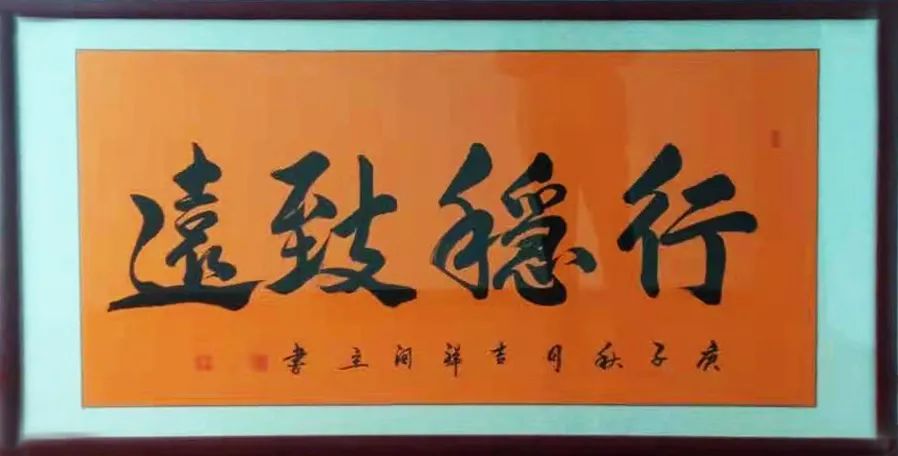 行穩致遠
庚子秋月吉祥閆立書